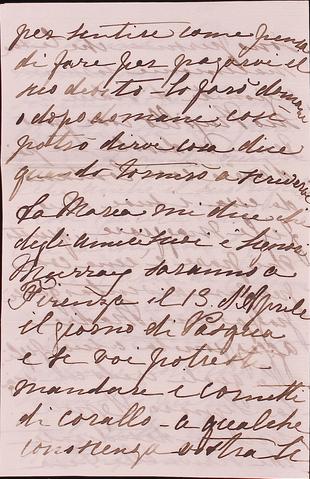 per sentire come pensa
di fare per pagarvi il
suo debito - lo farò domani
o dopo domani, così
potrò dirvi cosa dice
quando tornerò a scrivervi
La Maria mi dice che
degli amici suoi i Signori
Murray saranno a
Firenze il 13. d'Aprile
il giorno di Pasqua
e se voi poteste
mandare i cornetti
di corallo - a qualche
conoscenza vostra li